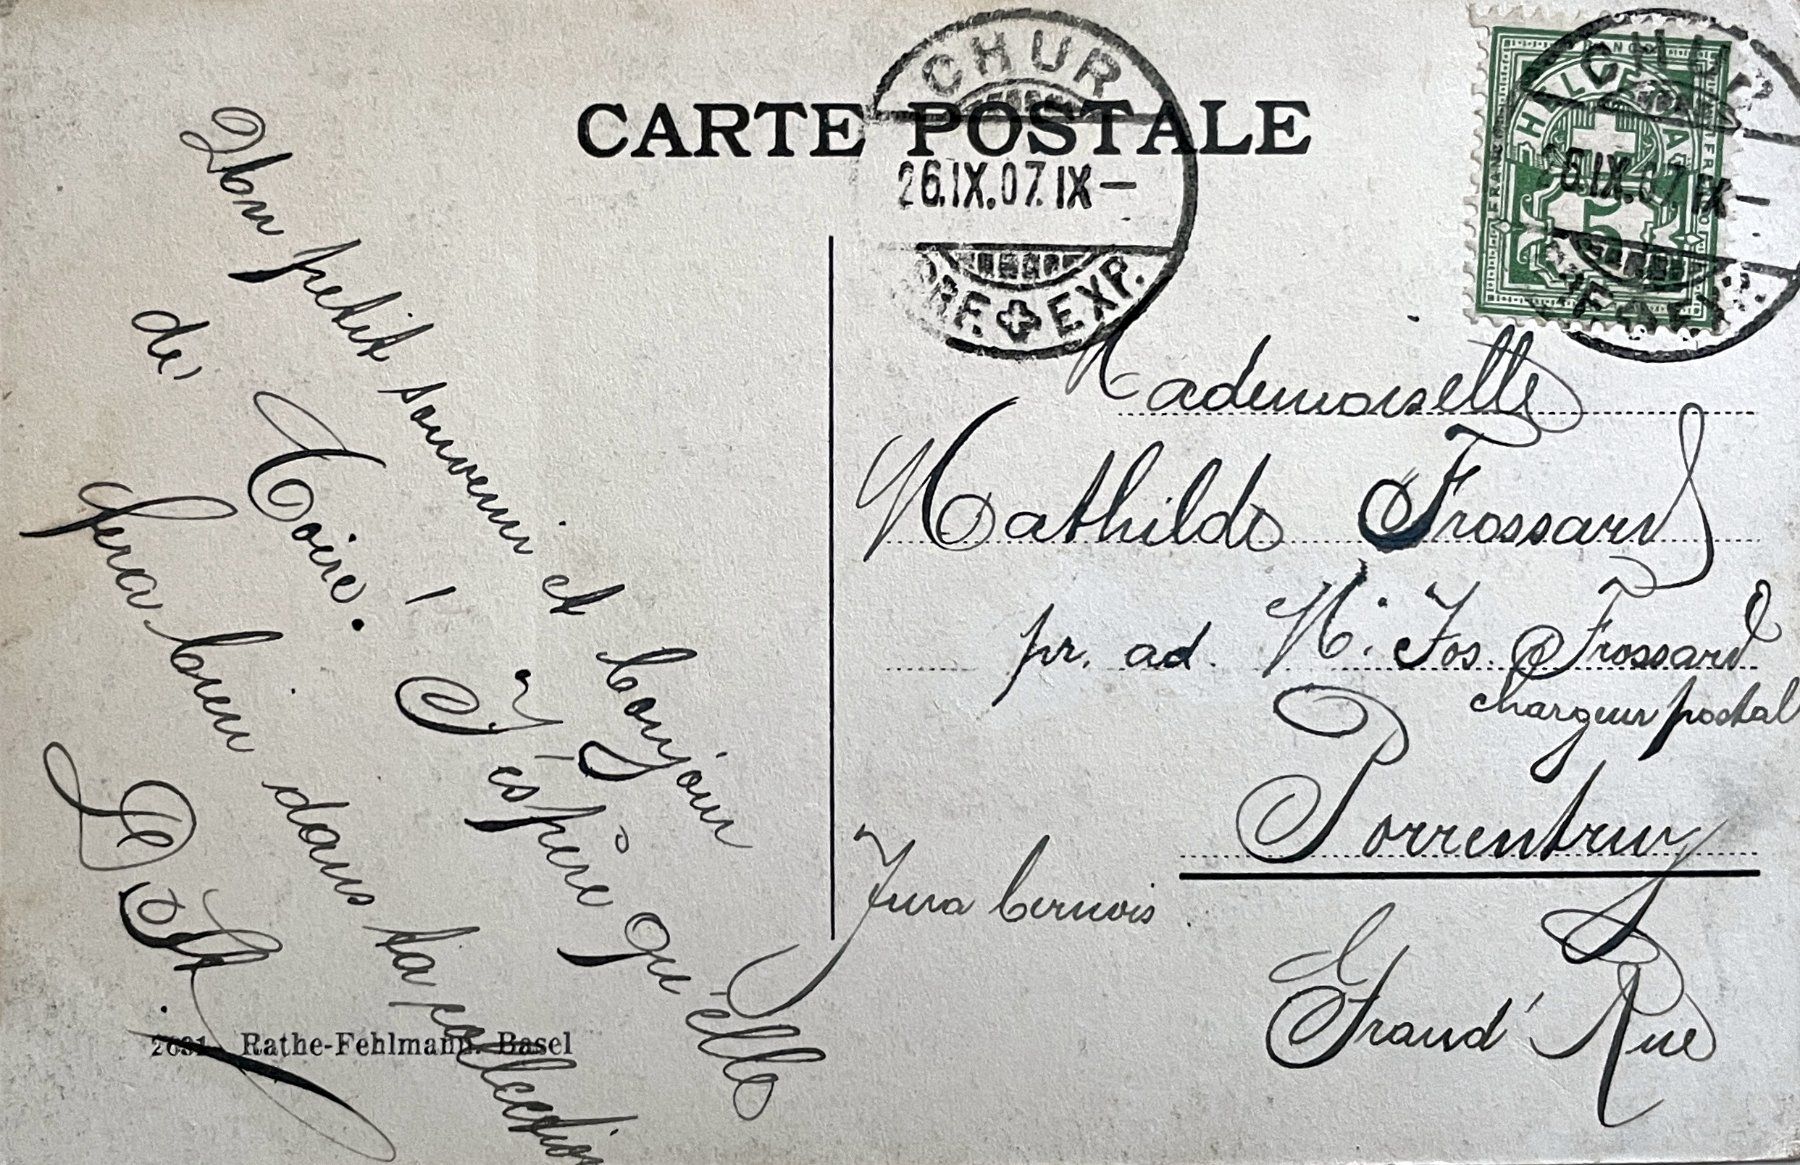 CARTE POSTALE
CHUR
26.IX.07.IX–
BRF. EXP.
CHUR
26.IX.07.IX–
BRF. EXP.
FRANCO
HELVETIA
5
Un petit souvenir et bonjour
de Coire. ! J'espère qu'elle
fera bien dans ta collection
Mademoiselle
Mathilde Frossard
pr. ad. M. Jos. Frossard
chargeur postal
Porrentruy
Jura bernois
Grand' Rue
2631 Rathe-Fehlmann. Basel